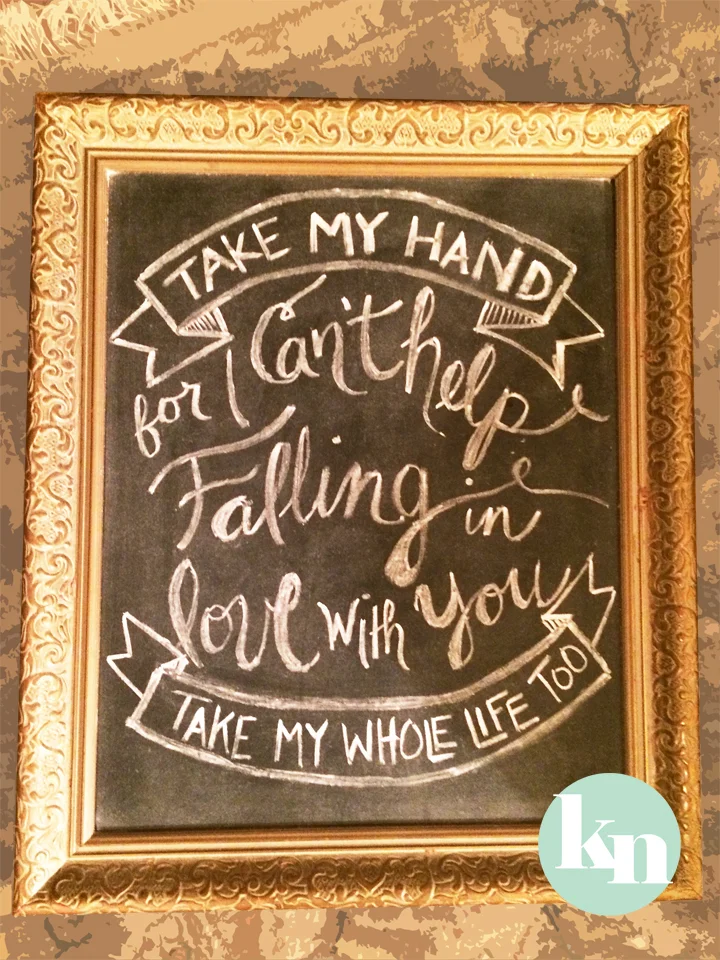 TAKE MY HAND
for I Can't help
Falling in
love with you
TAKE MY WHOLE LIFE TOO
kn